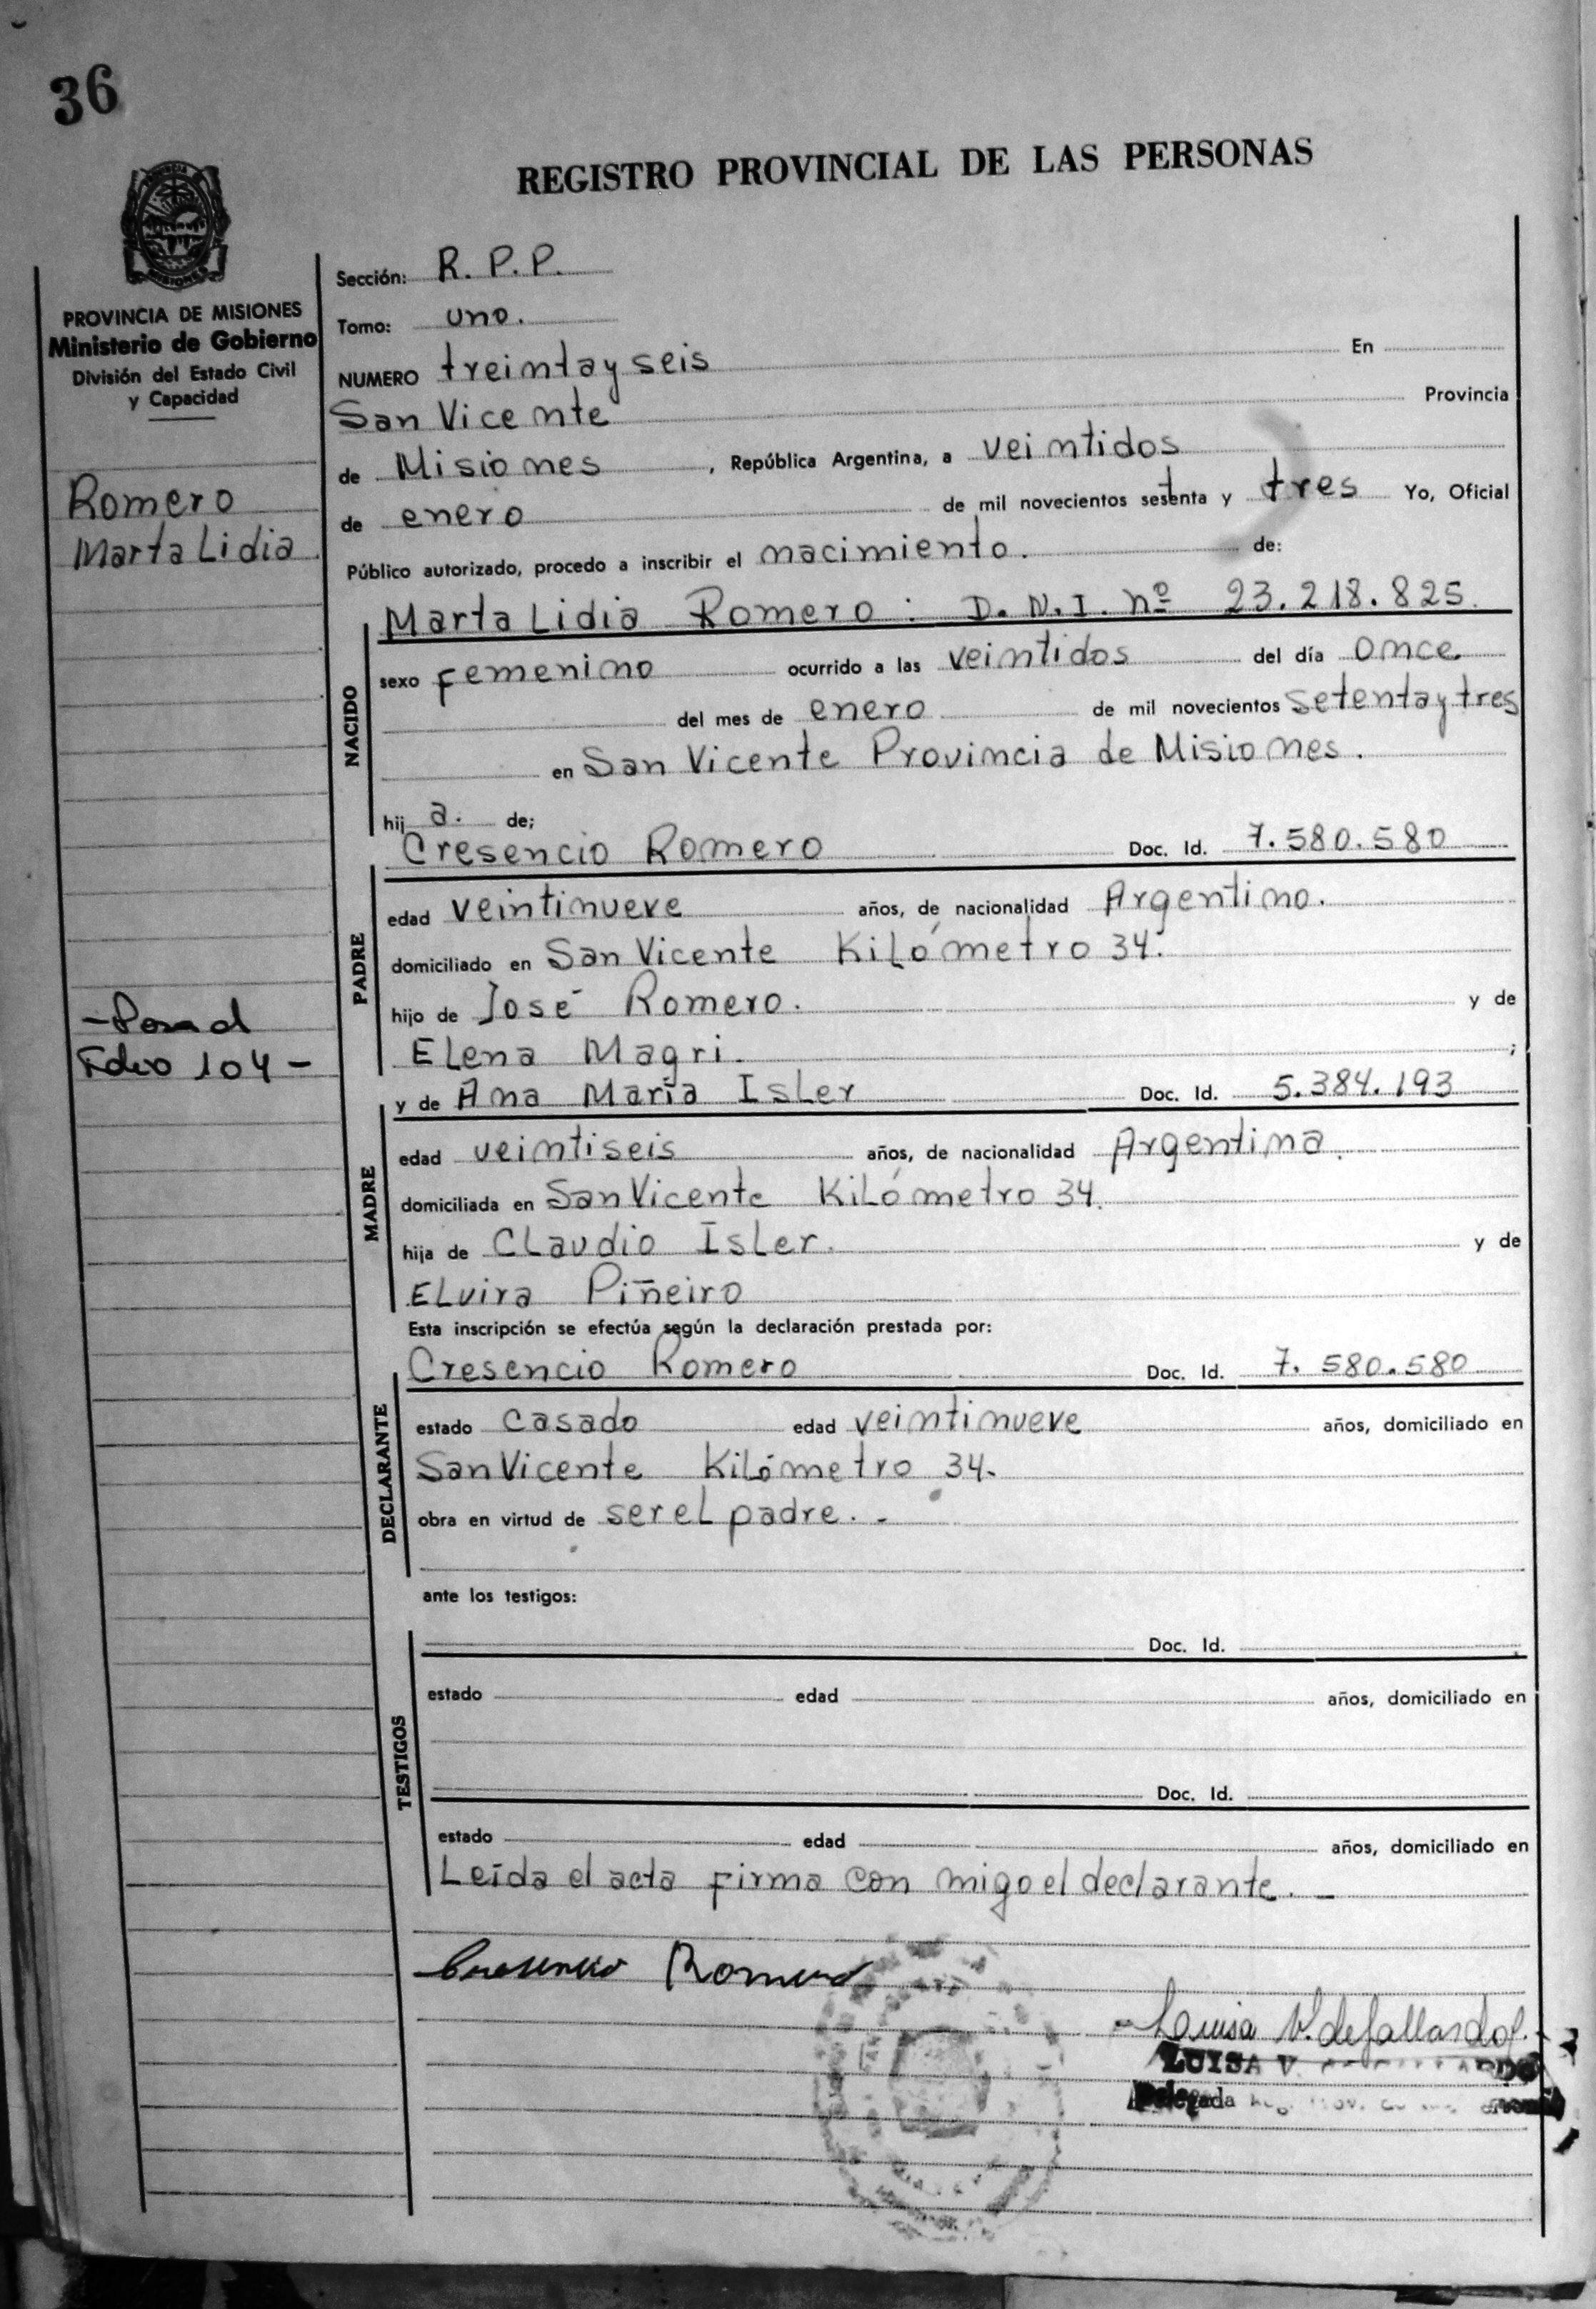 36
REGISTRO PROVINCIAL DE LAS PERSONAS
PROVINCIA DE MISIONES
Ministerio de Gobierno
División del Estado Civil
y Capacidad
Romero
Marta Lidia
Folio 104 -
Sección: R. P. P.
Tomo: uno.
NUMERO treinta y seis En
San Vicente Provincia
de Misiones, República Argentina, a veintidos
de enero de mil novecientos setenta y tres Yo, Oficial
Público autorizado, procedo a inscribir el nacimiento. de:
Marta Lidia Romero: D.N.I. nº 23.218.825.
NACIDO
sexo Femenino ocurrido a las veintidos del día once
del mes de enero de mil novecientos setenta y tres
en San Vicente Provincia de Misiones.
hij a. de;
Cresencio Romero Doc. Id. 7.580.580
PADRE
edad veintinueve años, de nacionalidad Argentino.
domiciliado en San Vicente Kilómetro 34.
hijo de José Romero. y de
Elena Magri. ;
y de Ana María Isler Doc. Id. 5.384.193
MADRE
edad veintiseis años, de nacionalidad Argentina.
domiciliada en San Vicente Kilómetro 34.
hija de Claudio Isler. y de
Elvira Piñeiro
Esta inscripción se efectúa según la declaración prestada por:
Cresencio Romero Doc. Id. 7.580.580
DECLARANTE
estado casado edad veintinueve años, domiciliado en
San Vicente Kilómetro 34.
obra en virtud de ser el padre. -
ante los testigos:
Doc. Id.
TESTIGOS
estado edad años, domiciliado en
Doc. Id.
estado edad años, domiciliado en
Leída el acta firma con migo el declarante. -
Cresencio Romero
Luisa V. de Gallardo
LUISA V.
Delegada